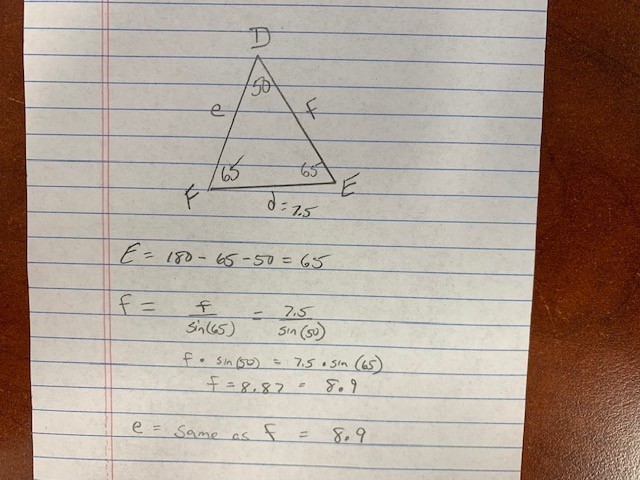 D
50
e f
65 65
F E
d = 7.5
E = 180 - 65 - 50 = 65
f = f/sin(65) = 7.5/sin(50)
f • sin(50) = 7.5 • sin(65)
f = 8.87 = 8.9
e = same as f = 8.9